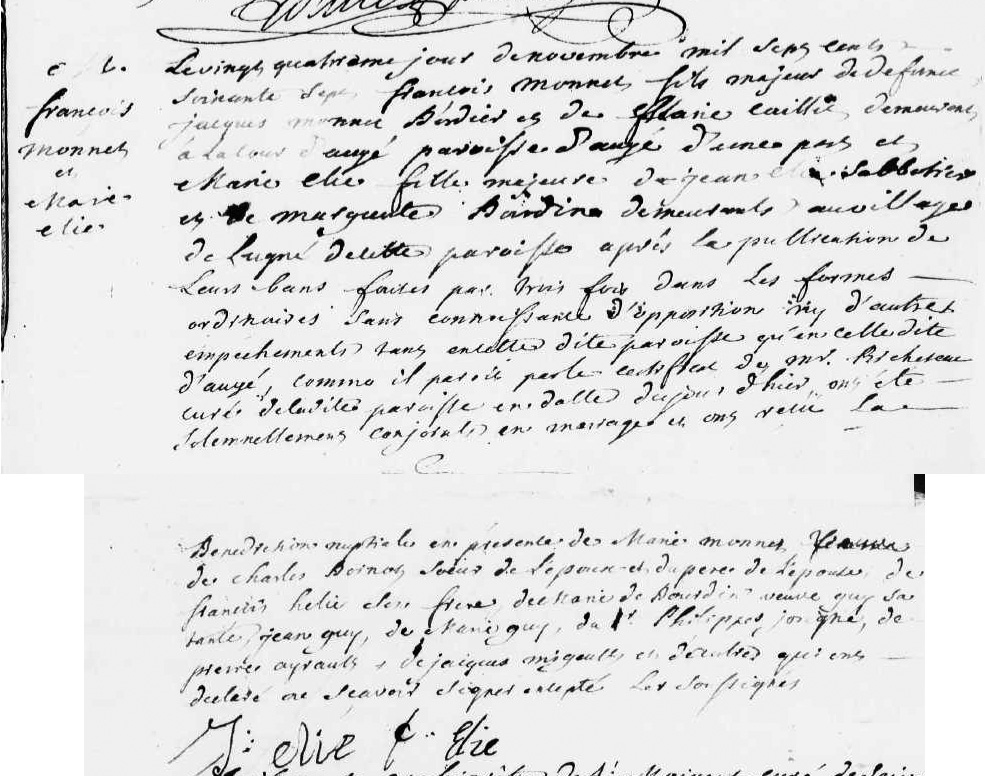 c t.
françois
monnet
et
Marie
elie
Le vingt quatrieme jour de novembre mil sept cents
soixante sept françois monnet fils majeur de defunct
jacques monnet Bordier et de Marie caillie demeurant
a La tour d'augé paroisse d'augé d'une part et
Marie elie fille majeure de jean elie Sabbotier
et de marguerite Bourdine demeurants au village
de Lugné de cette paroisse après La publication de
Leurs bans faites par trois fois dans Les formes
ordinaires sans connoissance d'opposition ny d'autres
empechements tant en cette dite paroisse qu'en celle dite
d'augé, comme il paroit par le certificat de mr. Richeteau
curé de ladite paroisse en datte du jour d'hier, ont été
solemnellement conjoints en mariage et ont reçü La
Benediction nuptiale en présence de Marie monnet,
de charles Boinot soeur de L'epoux et du pere de L'epouse, de
françois helie son frere, de Marie de Bourdin veuve guy sa
tante, jean guy, de Marie guy, du Sr. Philippes jorigné, de
pierre ayrault, de jacques migault et d'autres qui ont
declaré ne sçavoir signer excepté Les soussignés
J: elie f: Elie